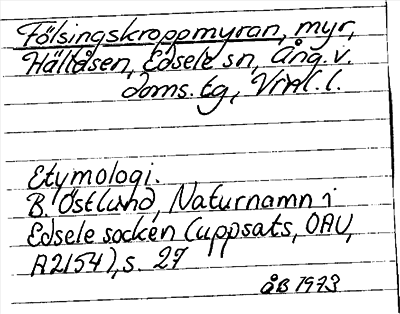 Fölsingskroppmyran, myr,
Hällåsen, Edsele sn, Ång. v.
doms. tg, Vrnl. l.
Etymologi.
B. Östlund, Naturnamn i
Edsele socken (uppsats, OAU,
A2154), s. 27
ÅB 1973